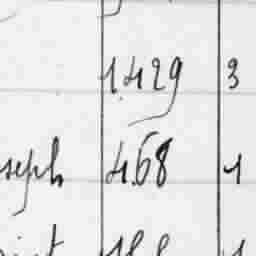 1.429 3
seph 468 1